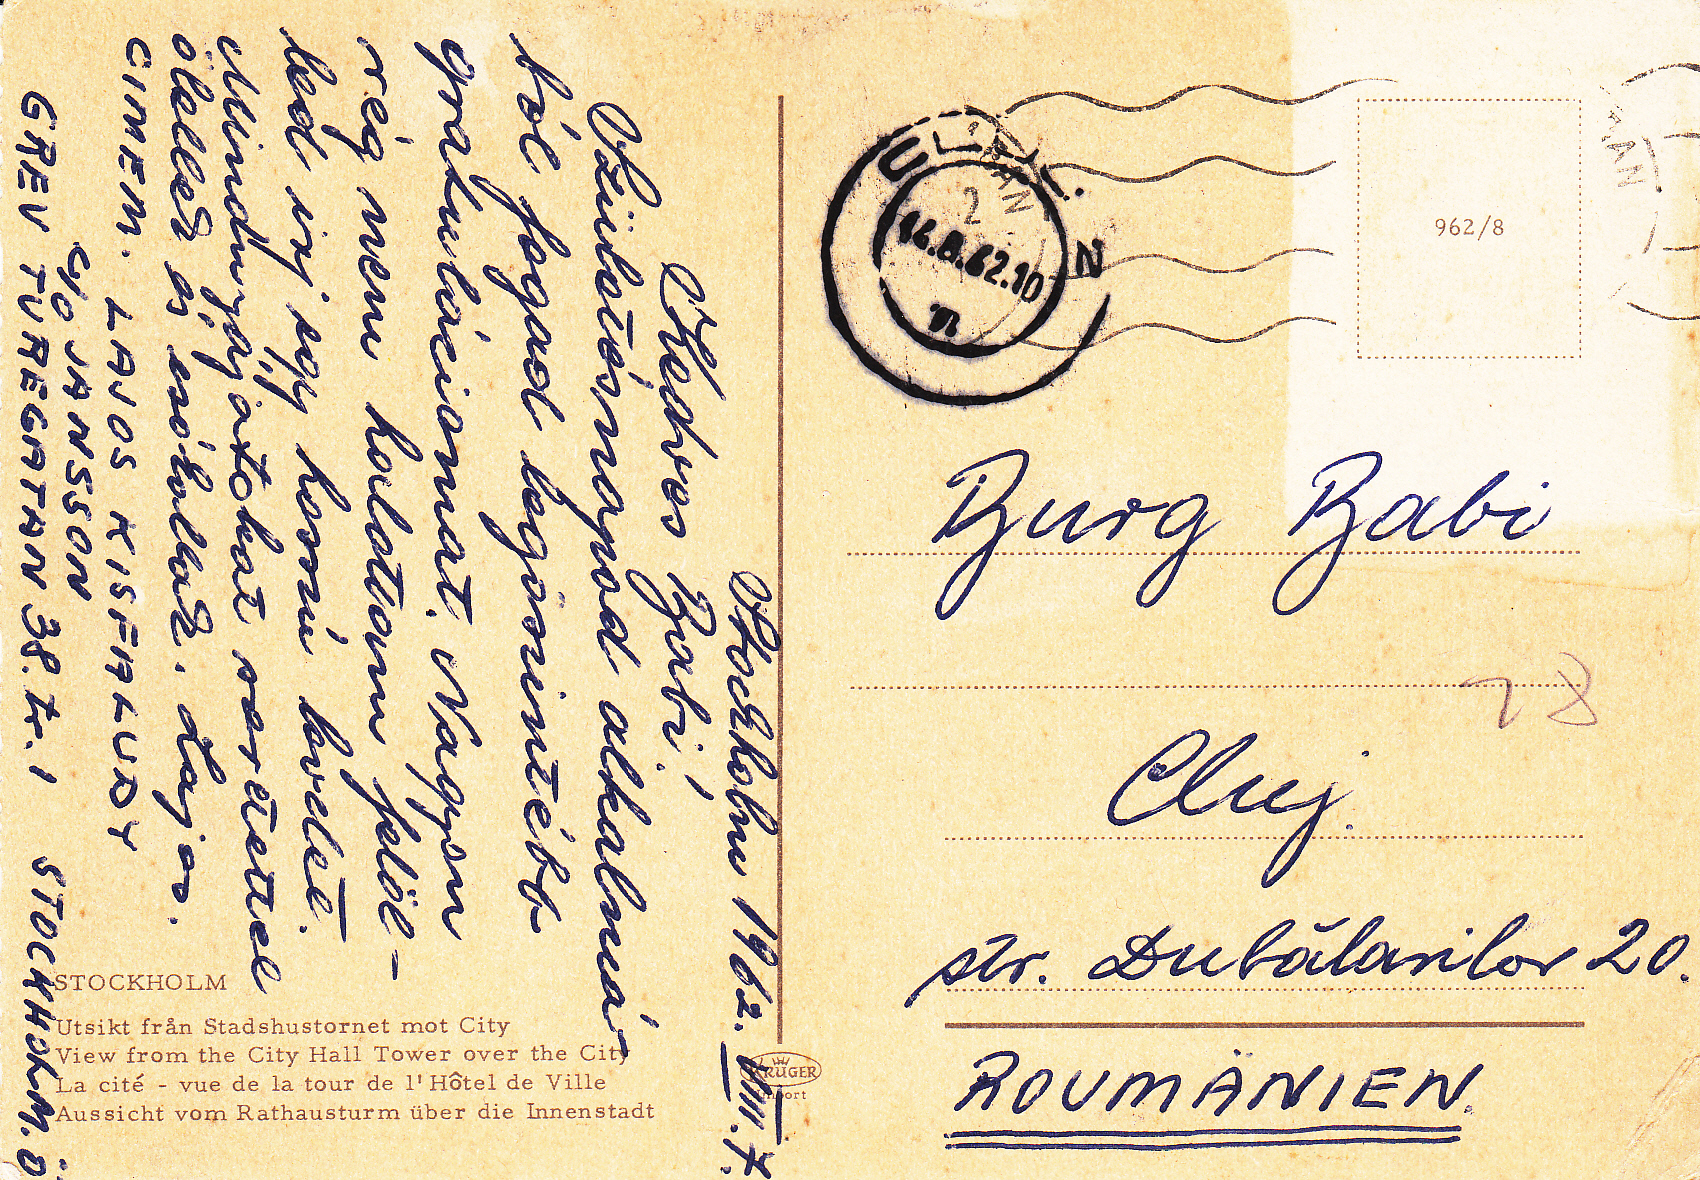 Stockholm 1962. VIII. 7.
Kedves Babi!
Születésnapod alkalmá-
ból fogad legőszintébb
gratulációmat. Nagyon
rég nem hallottam felőled
írj egy hosszú levelet.
Mindnyájatokat szeretettel
ölellek és csókollak. Lajos.
CIMEM. LAJOS KISFALUDY
C/O JANSSON
GREV TUREGATAN 38. tr. 1 STOCKHOLM. Ö
STOCKHOLM
Utsikt från Stadshustornet mot City
View from the City Hall Tower over the City
La cité - vue de la tour de l'Hôtel de Ville
Aussicht vom Rathausturm über die Innenstadt
KRÜGER
CLUJ
2
14.8.62.10
962/8
Burg Babi
28
Cluj.
str. Dubălarilor 20.
ROUMÄNIEN.